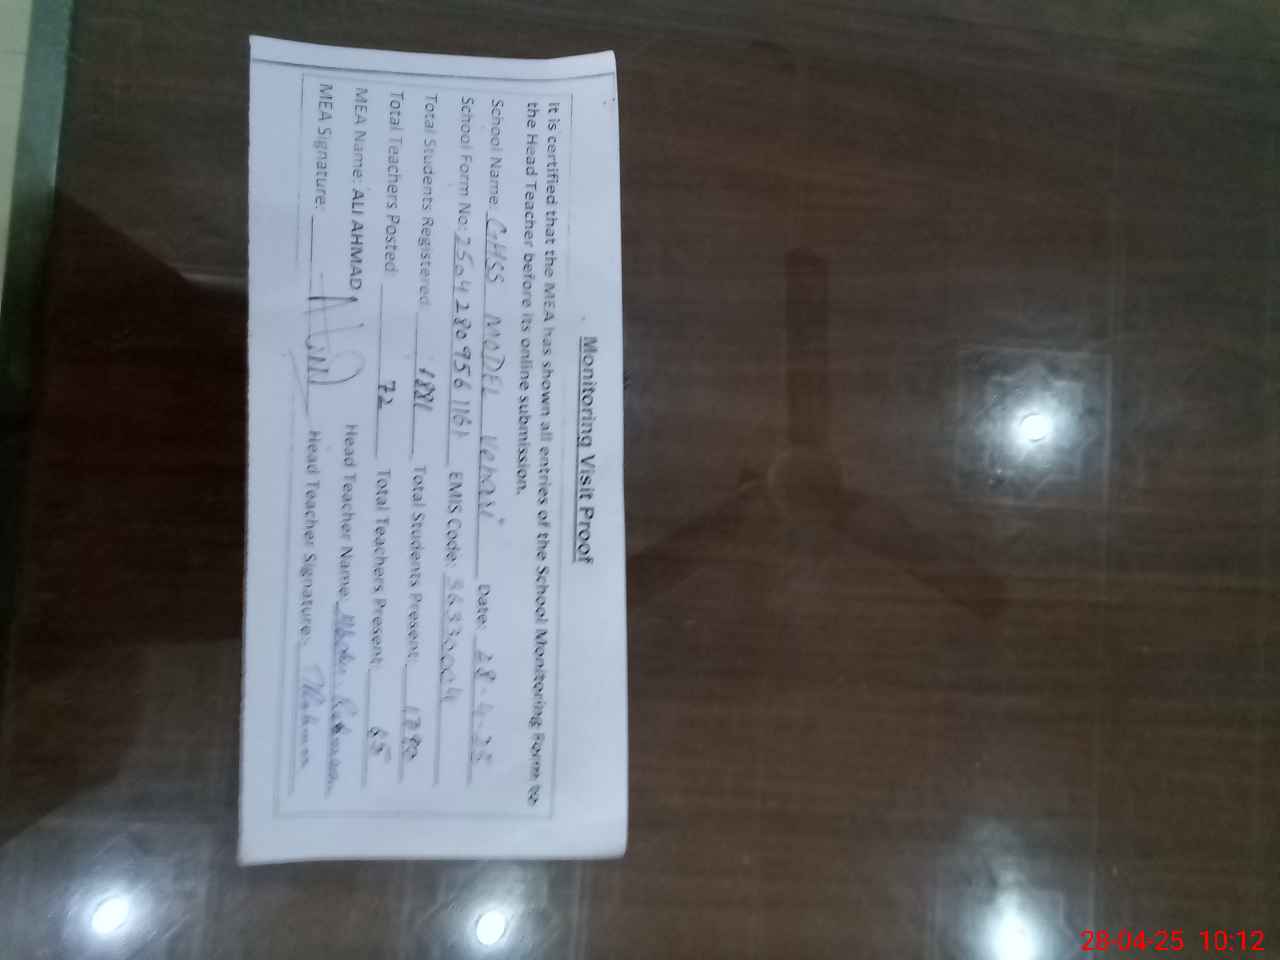 Monitoring Visit Proof
It is certified that the MEA has shown all entries of the School Monitoring Form to
the Head Teacher before its online submission.
School Name: GHSS MODEL Vehari Date: 28-4-25
School Form No: 25042809561161 EMIS Code: 36330004
Total Students Registered: 1881 Total Students Present: 1790
Total Teachers Posted 72 Total Teachers Present: 65
MEA Name: ALI AHMAD Head Teacher Name Rahman
MEA Signature: Head Teacher Signature: Rahman
28-04-25 10:12